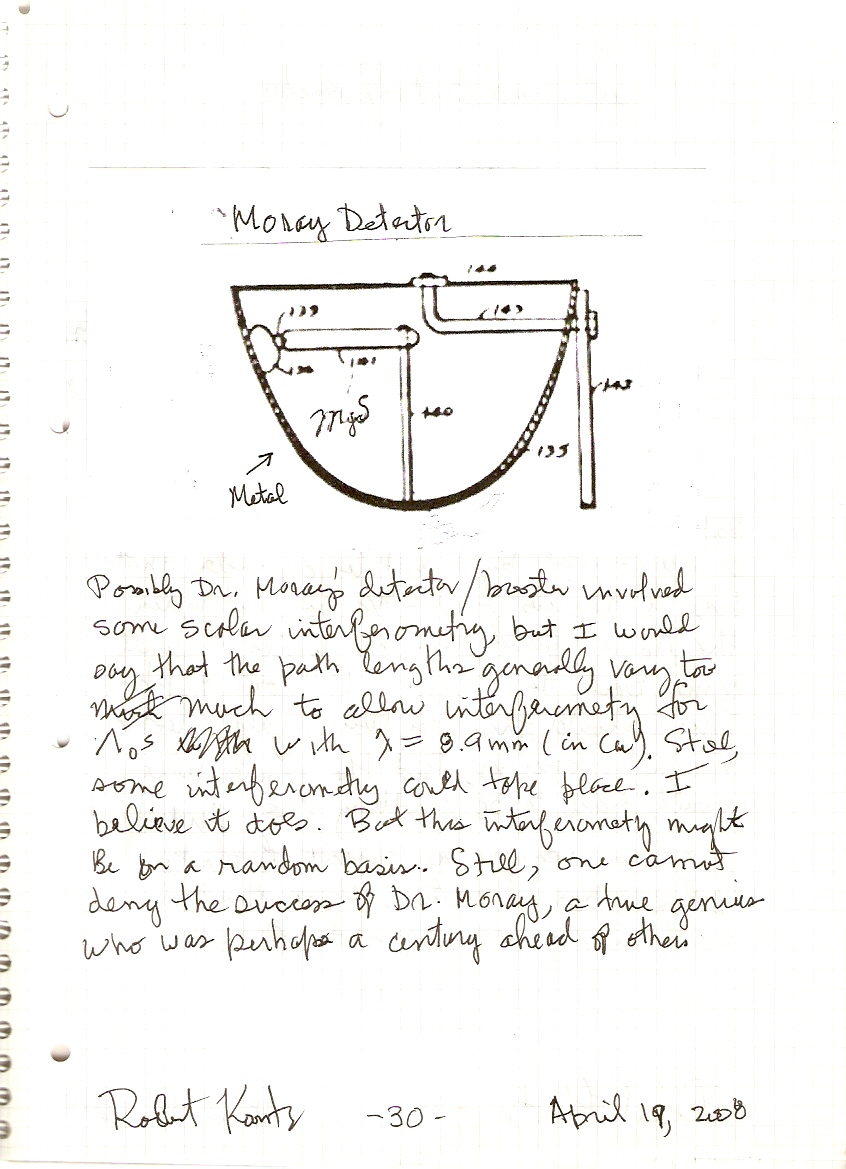 Moray Detector
144
139
143
136
141
143
MgS
140
135
Metal
Possibly Dr. Moray's detector/booster involved
some scalar interferometry, but I would
say that the path lengths generally vary too
much to allow interferometry for
Λ₀s with λ = 8.9mm (in Cu). Still,
some interferometry could take place. I
believe it does. But this interferometry might
Be on a random basis. Still, one cannot
deny the success of Dr. Moray, a true genius
who was perhaps a century ahead of others
Robert Kontz -30- April 19, 2008